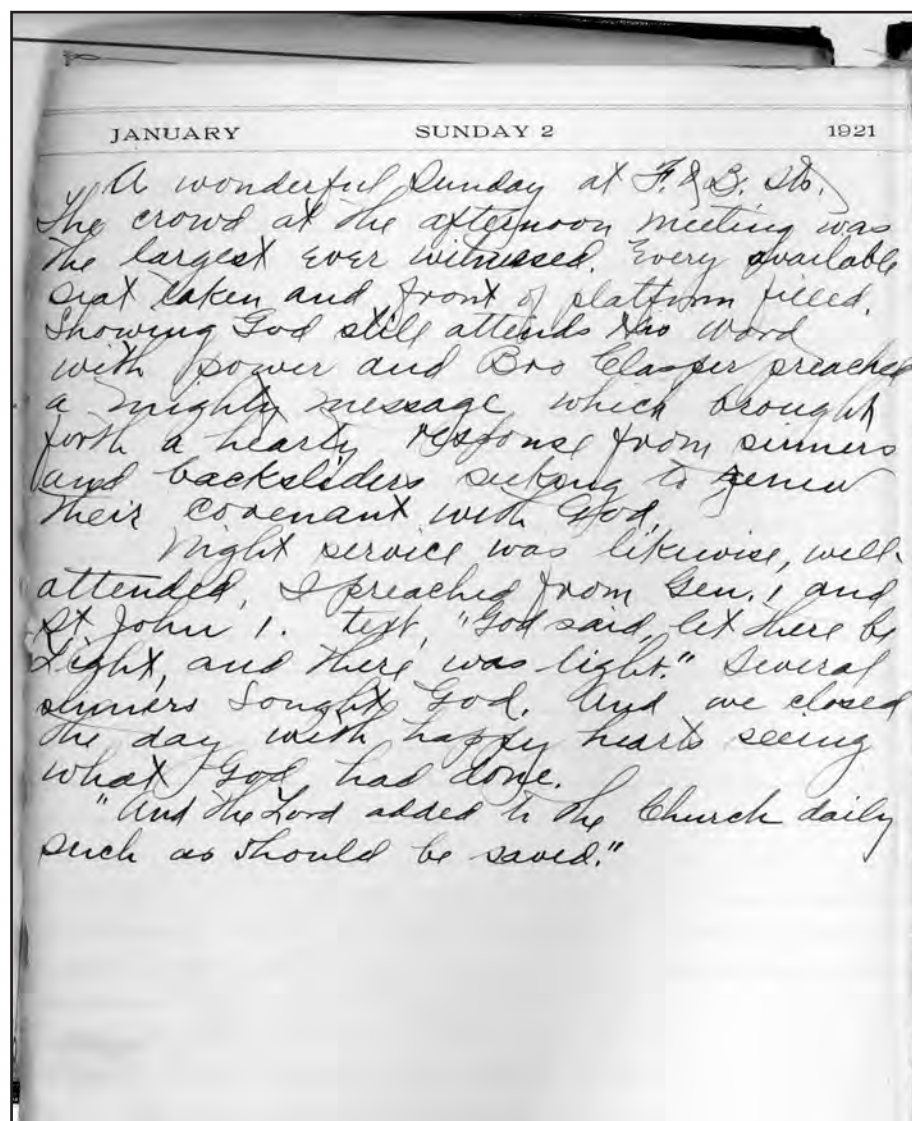 JANUARY SUNDAY 2 1921
A wonderful Sunday at F. & B. Sts.
The crowd at the afternoon meeting was
the largest ever witnessed. Every available
seat taken and front of platform filled.
Showing God still attends His word
with power and Bro Clasper preached
a mighty message which brought
forth a hearty response from sinners
and backsliders seeking to renew
their covenant with God.
Night service was likewise, well-
attended, I preached from Gen. 1 and
St John 1. text, "God said, let there be
Light, and there was light." Several
sinners sought God. And we closed
the day with happy hearts seeing
what God had done.
"And the Lord added to the Church daily
such as should be saved."